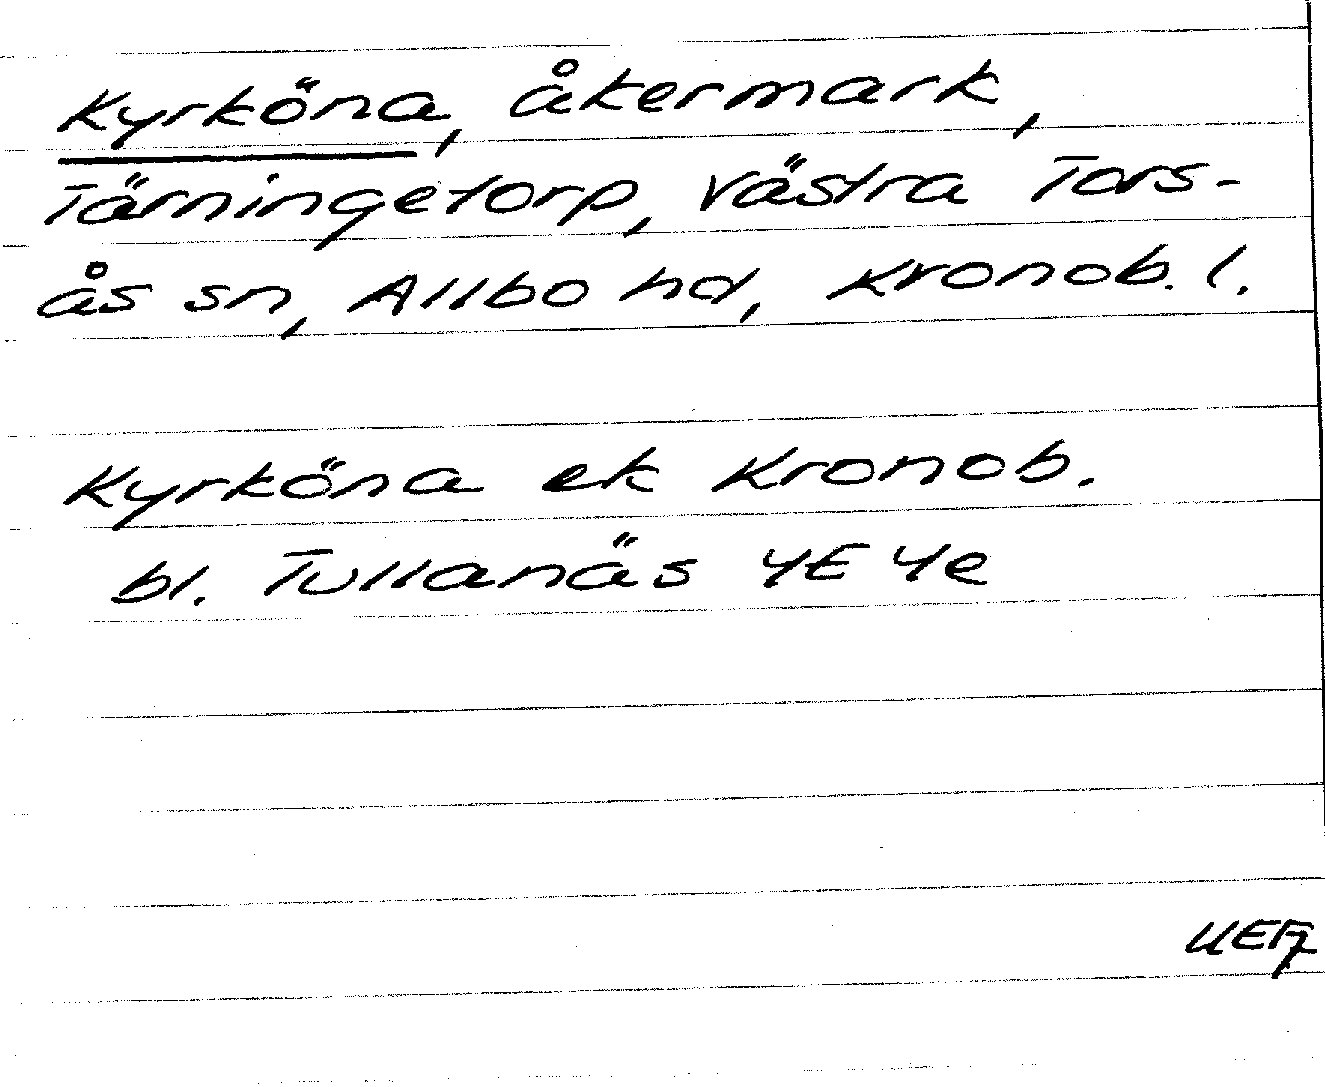 Kyrköna, åkermark,
Tärningetorp, Västra Tors-
ås sn, Allbo hd, Kronob. l.
Kyrköna ek Kronob.
bl. Tullanäs 4E 4e